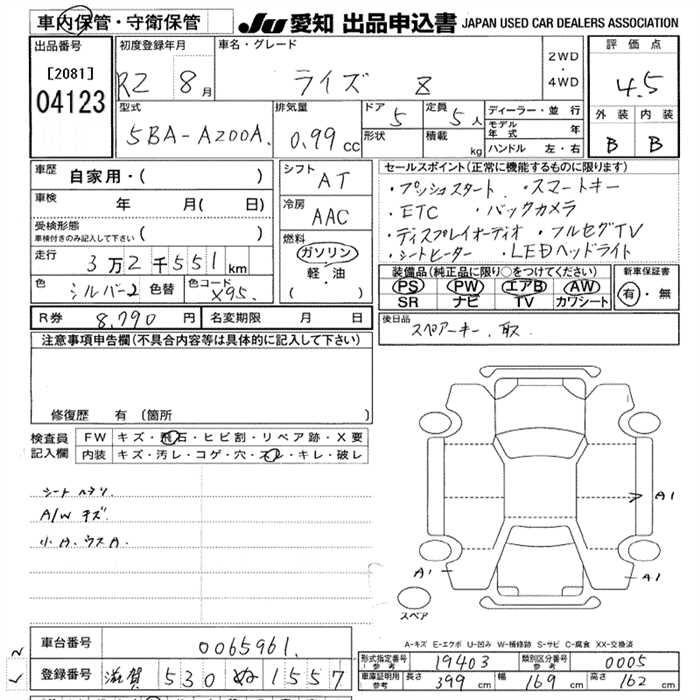 車内保管・守衛保管
JU 愛知 出品申込書 JAPAN USED CAR DEALERS ASSOCIATION
出品番号
[2081]
04123
初度登録年月
R2 8月
車名・グレード
ライズ Z
2WD
・
4WD
評価点
4.5
外装 内装
B B
型式
5BA-A200A.
排気量
0.99 cc
ドア 5
形状
定員 5人
積載 kg
ディーラー・並行
モデル年式 年
ハンドル 左・右
車歴
自家用・( )
車検 年 月( 日)
受検形態
車検付きのみ記入して下さい ( )
走行
3万2千551km
色 シルバー2 色替
色コード X95.
シフト
AT
冷房
AAC
燃料
ガソリン
軽・油
( )
セールスポイント(正常に機能するものに限ります)
・プッシュスタート ・スマートキー
・ETC ・バックカメラ
・ディスプレイオーディオ ・フルセグTV
・シートヒーター ・LEDヘッドライト
装備品(純正品に限り○をつけてください)
PS PW エアB AW
SR ナビ TV カワシート
新車保証書
有・無
R券 8,790円
名変期限 月 日
後日品
スペアーキー. 取
注意事項申告欄(不具合内容等は具体的に記入して下さい)
修復歴 有(箇所 )
検査員
記入欄
FW キズ・飛石・ヒビ割・リペア跡・X要
内装 キズ・汚レ・コゲ・穴・スレ・キレ・破レ
シート ヘタリ.
A/W キズ.
小A. ウスA.
A1
A1
A1
スペア
A-キズ E-エクボ U-凹み W-補修跡 S-サビ C-腐食 XX-交換済
車台番号 0065961.
登録番号 滋賀 530 ぬ 1557
型式指定番号
(参考) 19403
類別区分番号
(参考) 0005
車庫証明用
参考 長さ 399cm 幅 169cm 高さ 162cm